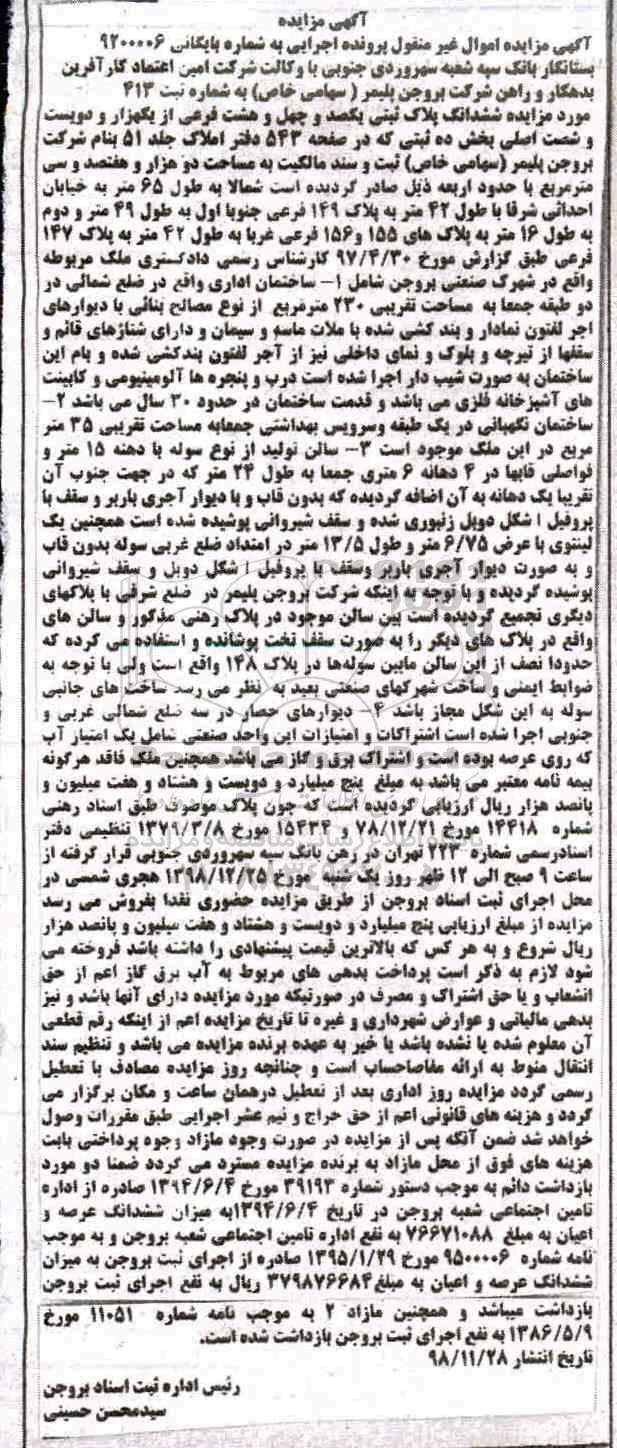 آگهی مزایده
آگهی مزایده اموال غیر منقول پرونده اجرایی به شماره بایگانی ۹۲۰۰۰۰۶
بستانکار بانک سپه شعبه سهروردی جنوبی با وکالت شرکت امین اعتماد کارآفرین
بدهکار و راهن شرکت بروجن پلیمر ( سهامی خاص) به شماره ثبت ۴۱۳
مورد مزایده ششدانگ پلاک ثبتی یکصد و چهل و هشت فرعی از یکهزار و دویست
و شصت اصلی بخش ده ثبتی که در صفحه ۵۴۳ دفتر املاک جلد ۵۱ بنام شرکت
بروجن پلیمر (سهامی خاص) ثبت و سند مالکیت به مساحت دو هزار و هفتصد و سی
مترمربع با حدود اربعه ذیل صادر گردیده است شمالا به طول ۶۵ متر به خیابان
احداثی شرقا با طول ۴۲ متر به پلاک ۱۴۹ فرعی جنوبا اول به طول ۴۹ متر و دوم
به طول ۱۶ متر به پلاک های ۱۵۵ و۱۵۶ فرعی غربا به طول ۴۲ متر به پلاک ۱۴۷
فرعی طبق گزارش مورخ ۹۷/۴/۳۰ کارشناس رسمی دادگستری ملک مربوطه
واقع در شهرک صنعتی بروجن شامل ۱- ساختمان اداری واقع در ضلع شمالی در
دو طبقه جمعا به مساحت تقریبی ۲۳۰ مترمربع از نوع مصالح بنائی با دیوارهای
اجر لفتون نمادار و بند کشی شده با ملات ماسه و سیمان و دارای شناژهای قائم و
سقفها از تیرچه و بلوک و نمای داخلی نیز از آجر لفتون بندکشی شده و بام این
ساختمان به صورت شیب دار اجرا شده است درب و پنجره ها آلومینیومی و کابینت
های آشپزخانه فلزی می باشد و قدمت ساختمان در حدود ۳۰ سال می باشد ۲-
ساختمان نگهبانی در یک طبقه وسرویس بهداشتی جمعابه مساحت تقریبی ۳۵ متر
مربع در این ملک موجود است ۳- سالن تولید از نوع سوله با دهنه ۱۵ متر و
فواصلی قابها در ۴ دهانه ۶ متری جمعا به طول ۲۴ متر که در جهت جنوب آن
تقریبا یک دهانه به آن اضافه گردیده که بدون قاب و با دیوار آجری باربر و سقف با
پروفیل I شکل دوبل زنبوری شده و سقف شیروانی پوشیده شده است همچنین یک
لینتوی با عرض ۶/۷۵ متر و طول ۱۳/۵ متر در امتداد ضلع غربی سوله بدون قاب
و به صورت دیوار آجری باربر وسقف با پروفیل I شکل دوبل و سقف شیروانی
پوشیده گردیده و با توجه به اینکه شرکت بروجن پلیمر در ضلع شرقی با پلاکهای
دیگری تجمیع گردیده است بین سالن موجود در پلاک رهنی مذکور و سالن های
واقع در پلاک های دیگر را به صورت سقف تخت پوشانده و استفاده می کرده که
حدودا نصف از این سالن مابین سوله‌ها در پلاک ۱۴۸ واقع است ولی با توجه به
ضوابط ایمنی و ساخت شهرکهای صنعتی بعید به نظر می رسد ساخت های جانبی
سوله به این شکل مجاز باشد ۴- دیوارهای حصار در سه ضلع شمالی غربی و
جنوبی اجرا شده است اشتراکات و امتیازات این واحد صنعتی شامل یک امتیاز آب
که روی عرصه بوده است و اشتراک برق و گاز می باشد همچنین ملک فاقد هرگونه
بیمه نامه معتبر می باشد به مبلغ پنج میلیارد و دویست و هشتاد و هفت میلیون و
پانصد هزار ریال ارزیابی گردیده است که چون پلاک موصوف طبق اسناد رهنی
شماره ۱۴۴۱۸ مورخ ۷۸/۱۲/۲۱ و ۱۵۴۳۴ مورخ ۱۳۷۹/۳/۸ تنظیمی دفتر
اسنادرسمی شماره ۲۲۳ تهران در رهن بانک سپه سهروردی جنوبی قرار گرفته از
ساعت ۹ صبح الی ۱۲ ظهر روز یک شنبه مورخ ۱۳۹۸/۱۲/۲۵ هجری شمسی در
محل اجرای ثبت اسناد بروجن از طریق مزایده حضوری نقدا بفروش می رسد
مزایده از مبلغ ارزیابی پنج میلیارد و دویست و هشتاد و هفت میلیون و پانصد هزار
ریال شروع و به هر کس که بالاترین قیمت پیشنهادی را داشته باشد فروخته می
شود لازم به ذکر است پرداخت بدهی های مربوط به آب برق گاز اعم از حق
انشعاب و یا حق اشتراک و مصرف در صورتیکه مورد مزایده دارای آنها باشد و نیز
بدهی مالیاتی و عوارض شهرداری و غیره تا تاریخ مزایده اعم از اینکه رقم قطعی
آن معلوم شده یا نشده باشد یا خیر به عهده برنده مزایده می باشد و تنظیم سند
انتقال منوط به ارائه مفاصاحساب است و چنانچه روز مزایده مصادف با تعطیل
رسمی گردد مزایده روز اداری بعد از تعطیل درهمان ساعت و مکان برگزار می
گردد و هزینه های قانونی اعم از حق حراج و نیم عشر اجرایی طبق مقررات وصول
خواهد شد ضمن آنکه پس از مزایده در صورت وجود مازاد وجوه پرداختی بابت
هزینه های فوق از محل مازاد به برنده مزایده مسترد می گردد ضمنا دو مورد
بازداشت دائم به موجب دستور شماره ۳۹۱۹۳ مورخ ۱۳۹۴/۶/۴ صادره از اداره
تامین اجتماعی شعبه بروجن در تاریخ ۱۳۹۴/۶/۴به میزان ششدانگ عرصه و
اعیان به مبلغ ۷۶۶۷۱۰۸۸ به نفع اداره تامین اجتماعی شعبه بروجن و به موجب
نامه شماره ۹۵۰۰۰۰۶ مورخ ۱۳۹۵/۱/۲۹ صادره از اجرای ثبت بروجن به میزان
ششدانگ عرصه و اعیان به مبلغ۳۷۹۸۷۶۶۸۴ ریال به نفع اجرای ثبت بروجن
بازداشت میباشد و همچنین مازاد ۲ به موجب نامه شماره ۱۱۰۵۱ مورخ
۱۳۸۶/۵/۹ به نفع اجرای ثبت بروجن بازداشت شده است.
تاریخ انتشار ۹۸/۱۱/۲۸
رئیس اداره ثبت اسناد بروجن
سیدمحسن حسینی